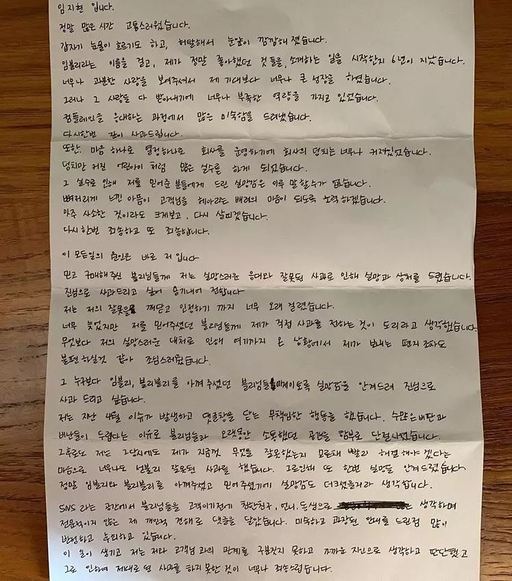 임지현 입니다.
정말 많은시간 고통스러웠습니다.
갑자기 눈물이 흐르기도 하고, 허탈해서 눈앞이 깜깜해 졌습니다.
임블리라는 이름을 걸고, 제가 정말 좋아했던 것들을, 소개하는 일을 시작한지 6년이 지났습니다.
너무나 과분한 사랑을 보여주셔서 제 기대보다 너무나 큰 성장을 하였습니다.
그러나 그 사랑을 다 받아내기에 너무나 부족한 역량을 가지고 있었습니다.
컴플레인을 응대하는 과정에서 많은 미숙함을 드러냈습니다.
다시한번 깊이 사과드립니다.
또한, 마음 하나로 열정하나로 회사를 운영하기에 회사의 덩치는 너무나 커져있었습니다.
덩치만 커진 어린아이 처럼 많은 실수를 하게 되었습니다.
그 실수로 인해 저를 믿어준 분들에게 드린 실망감은 이루 말할수가 없습니다.
뼈저리게 느낀 마음이 고객님을 헤아리는 배려의 마음이 되도록 노력하겠습니다.
아주 사소한 것이라도 크게보고, 다시 살피겠습니다.
다시한번 죄송하고 또 죄송합니다.
이 모든일의 원인은 바로 저 입니다
믿고 기대해주신 블리님들께 저는 실망스러운 응대와 잘못된 사과로 인해 실망과 상처를 드렸습니다.
진심으로 사과드리고 싶어 용기내어 전합니다
저는 저의 잘못을 깨닫고 인정하기 까지 너무 오래 걸렸습니다.
너무 늦었지만 저를 믿어주셨던 블리님들께 제가 직접 사과를 전하는 것이 도리라고 생각했습니다
무엇보다 저의 실망스러운 대처로 인해 여기까지 온 상황에서 제가 보내는 편지 조차도
불편하실것 같아 조심스러웠습니다.
그 누구보다 임블리, 블리블리를 아껴 주셨던 블리님들께 이토록 실망감을 안겨드려 진심으로
사과 드리고 싶습니다.
저는 지난 4월 이슈가 발생하고 댓글창을 닫는 무책임한 행동을 했습니다. 수많은 비판과
비난들이 두렵다는 이유로 블리님들과 오랫동안 소통했던 공간을 일방적으로 단절시켰습니다.
그후로도 저는 그당시에도 제가 지금껏 무엇을 잘못했는지 모른채 빨리 해결해야 겠다는
마음으로 너무나도 섣불리 잘못된 사과를 했습니다. 그로인해 또 한번 실망을 안겨드렸습니다.
정말 임블리와 블리블리를 아껴주셨고 믿어주셨기에 실망감도 더 컸을거라 생각합니다.
SNS 라는 공간에서 블리님들을 고객이기전에 친한친구, 언니, 동생으로 생각하며
전문적이지 않는 제 개인적 견해로 댓글을 달았습니다. 미숙하고 과장된 안내를 드린점 많이
반성하고 후회하고 있습니다.
이 일이 생기고 저는 나와 고객님 과의 관계를 구분짓지 못하고 가까운 지인으로 생각하고 판단했고
그로 인하여 제대로 된 사과를 하지 못한 것이 너무나 죄송스럽습니다.